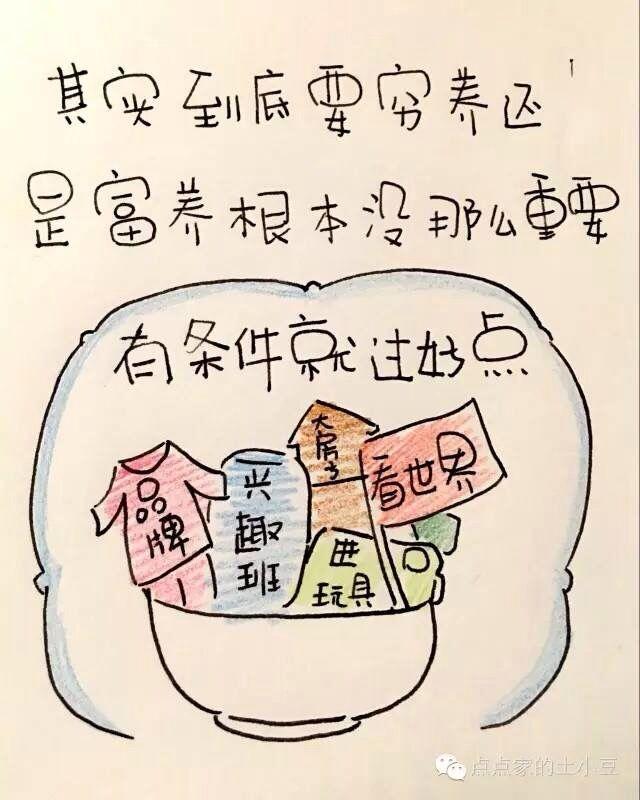 其实到底要穷养还
是富养根本没那么重要
有条件就过好点
品牌
兴趣班
大房子
看世界
进口
玩具
点点家的土小豆